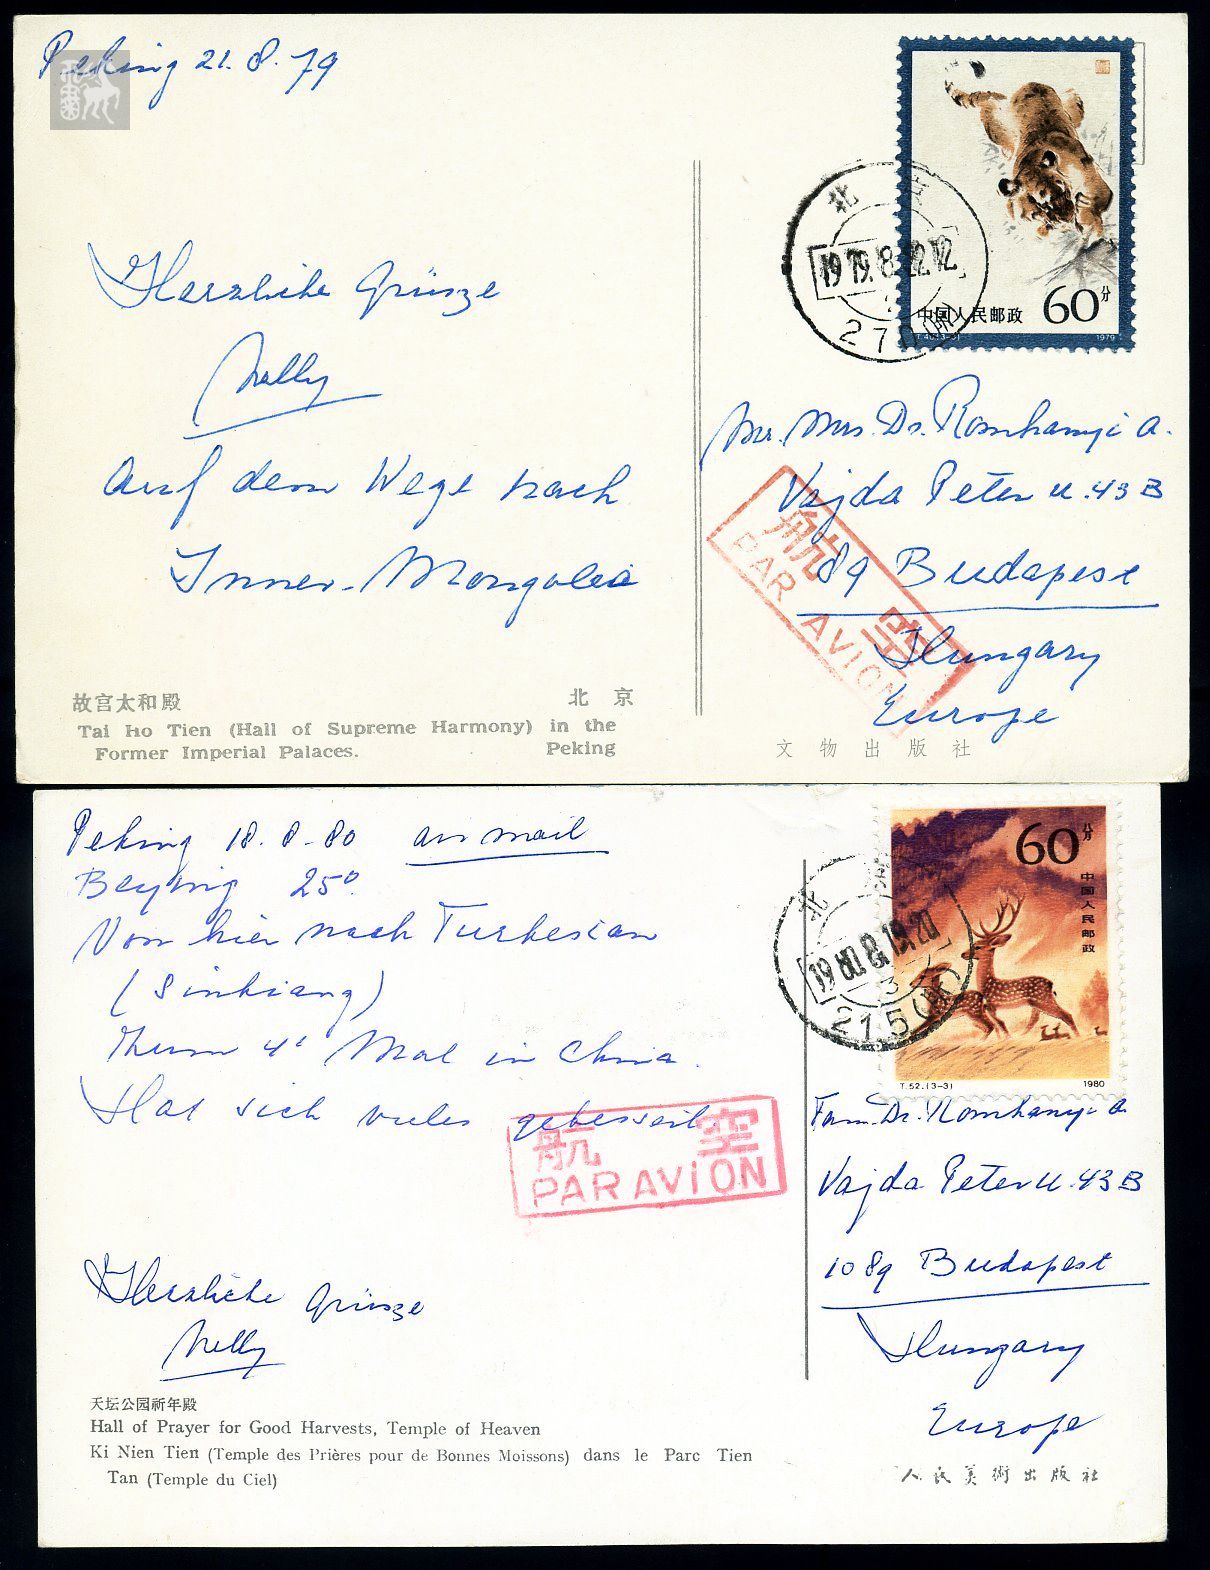 Peking 21.8.79
60分
中国人民邮政
T.40.(3-3)
1979
北京
1979.8.22.12
Herzliche Grüsze
Nelly
Auf dem Wege nach
Inner-Mongolia
Mr. Mrs. Dr. Romhanyi A.
Vajda Peter u. 43 B
89 Budapest
Hungary
Europe
航空
PAR AVION
故宫太和殿 北京
Tai Ho Tien (Hall of Supreme Harmony) in the
Former Imperial Palaces. Peking
文物出版社
Peking 18.8.80 air mail
Beying 25°
Von hier nach Turkestan
(Sinkiang)
Zum 4' Mal in China.
Hat sich vieles gebessert.
60分
中国人民邮政
T.52.(3-3)
1980
北
1980.8.19.20
215
航空
PAR AVION
Fam. Dr. Romhanyi A.
Vajda Peter u. 43 B
1089 Budapest
Hungary
Europe
Herzliche Grüsze
Nelly
天坛公园祈年殿
Hall of Prayer for Good Harvests, Temple of Heaven
Ki Nien Tien (Temple des Prières pour de Bonnes Moissons) dans le Parc Tien
Tan (Temple du Ciel)
人民美術出版社